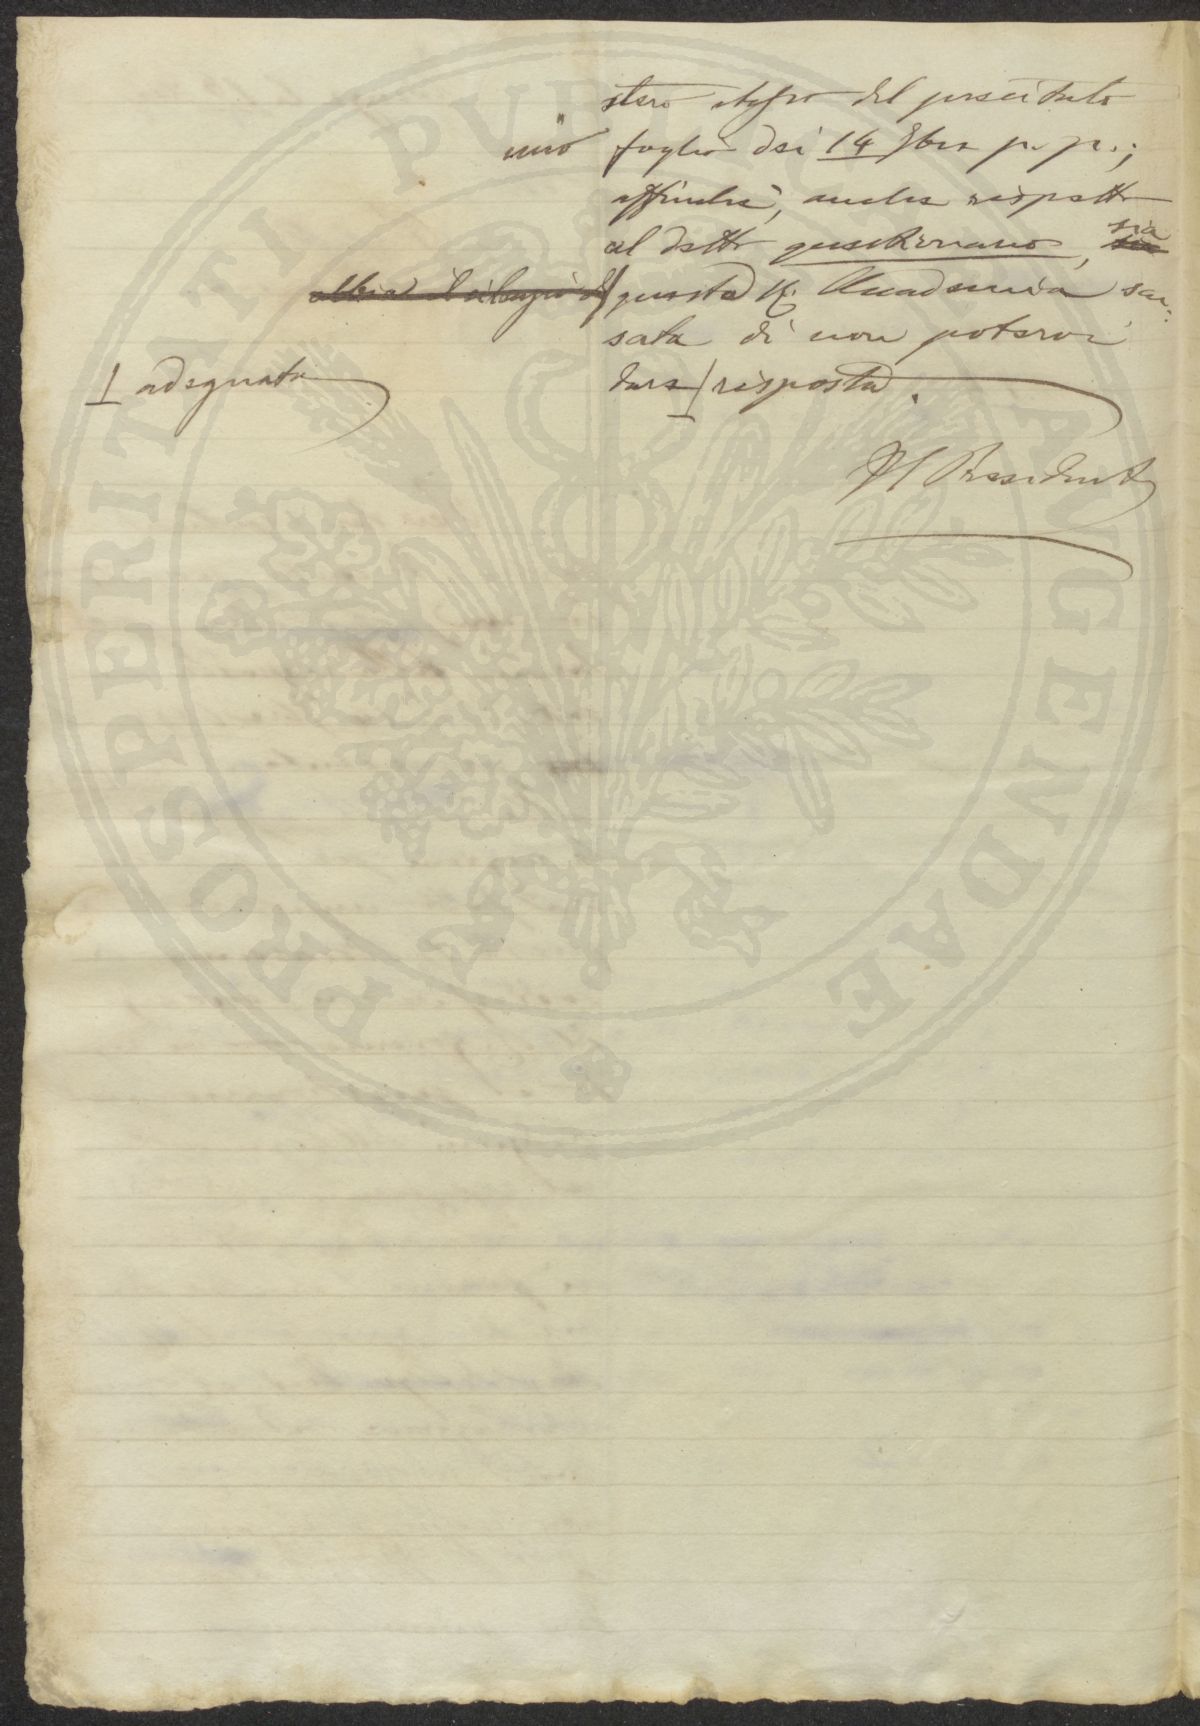 stero stesso del precitato
mio foglio dei 14 9bre p. p.;
affinchè, anche rispetto
al detto questionario, sia
questa R. Accademia scu-
sata di non potervi
dare risposta.
⊥ adeguata
Il Presidente
PROSPERITATI PVBLICAE AVGENDAE